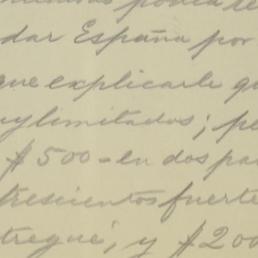 podía
dar España por
que explicarle
limitados; pe
$500- en dos pa
trescientos fuerte
tregué, y $200